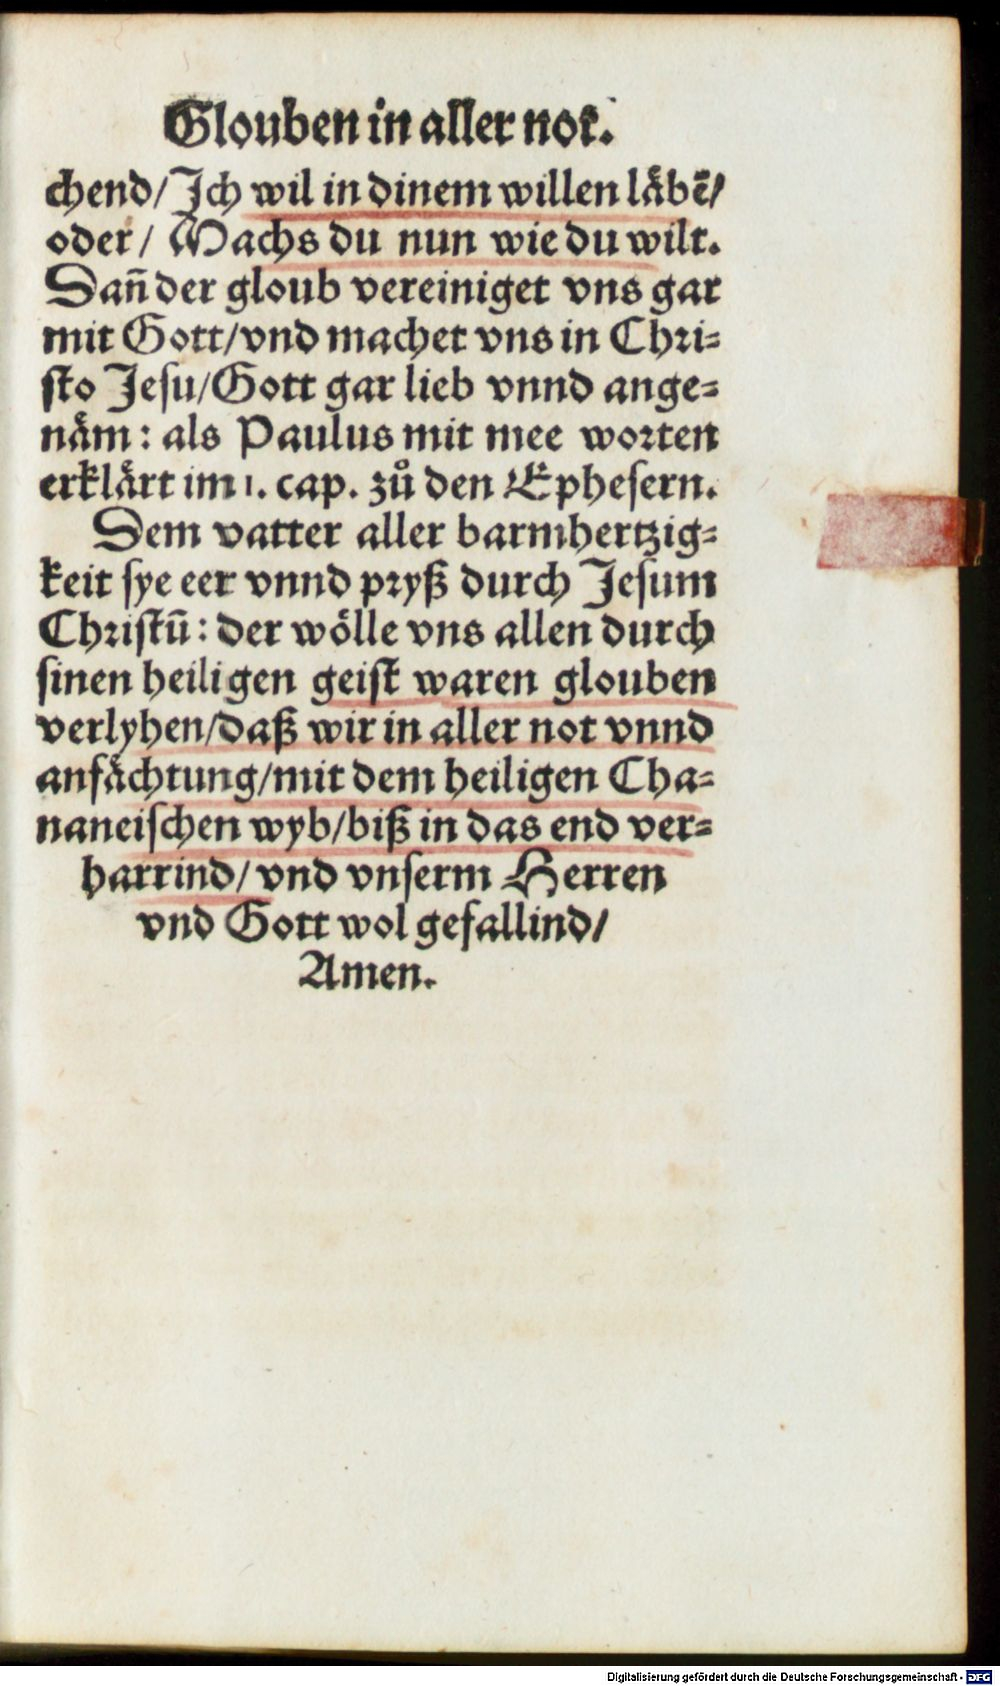 Glouben in aller not.
chend/ Jch wil in dinem willen läbē/
oder/ Machs du nun wie du wilt.
Dañ der gloub vereiniget vns gar
mit Gott/vnd machet vns in Chri⸗
sto Jesu/Gott gar lieb vnnd ange⸗
näm: als Paulus mit mee worten
erklärt im 1. cap. zů den Ephesern.
Dem vatter aller barmhertzig⸗
keit sye eer vnnd pryß durch Jesum
Christū: der wölle vns allen durch
sinen heiligen geist waren glouben
verlyhen/daß wir in aller not vnnd
anfächtung/mit dem heiligen Cha⸗
naneischen wyb/biß in das end ver⸗
harrind/ vnd vnserm Herren
vnd Gott wol gefallind/
Amen.
Digitalisierung gefördert durch die Deutsche Forschungsgemeinschaft - DFG